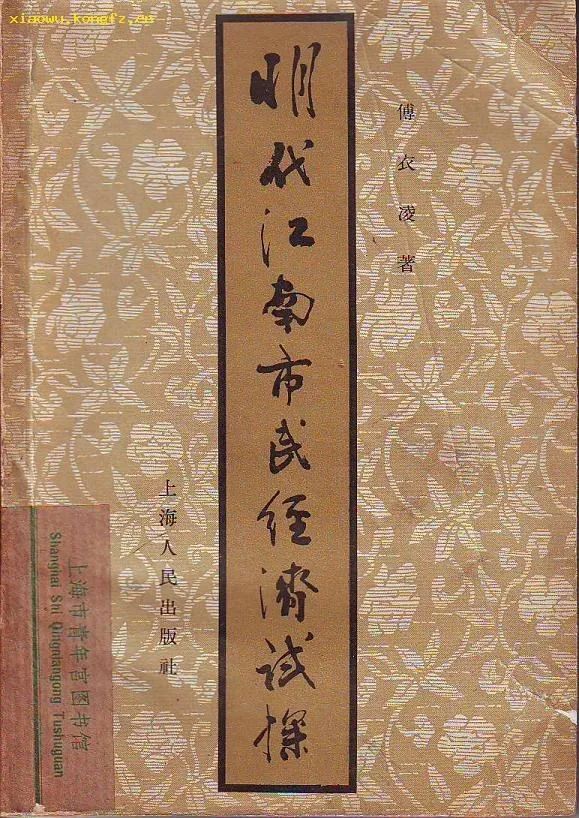 xiaowu.kongfz.cn
傅衣凌著
明代江南市民经济试探
上海人民出版社
上海市青年宫图书馆
Shanghai Shi Qingniangong Tushuguan